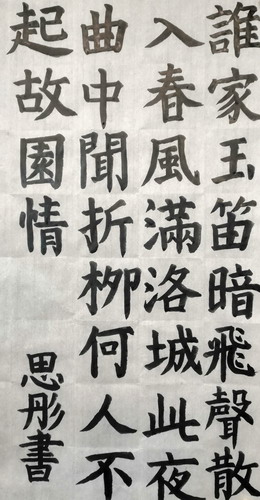 誰家玉笛暗飛聲散
入春風滿洛城此夜
曲中聞折柳何人不
起故園情
思彤書